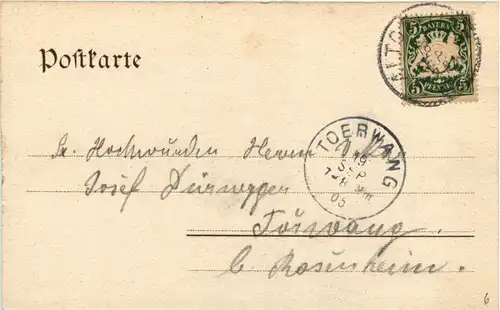 Postkarte
5 BAYERN 5
5 PFENNIG 5
TOERWANG
19
SEP
7-8 Vm
05
Sr. Hochwürden Herrn
Josef Dürnegger
Törwang.
b. Rosenheim.
6